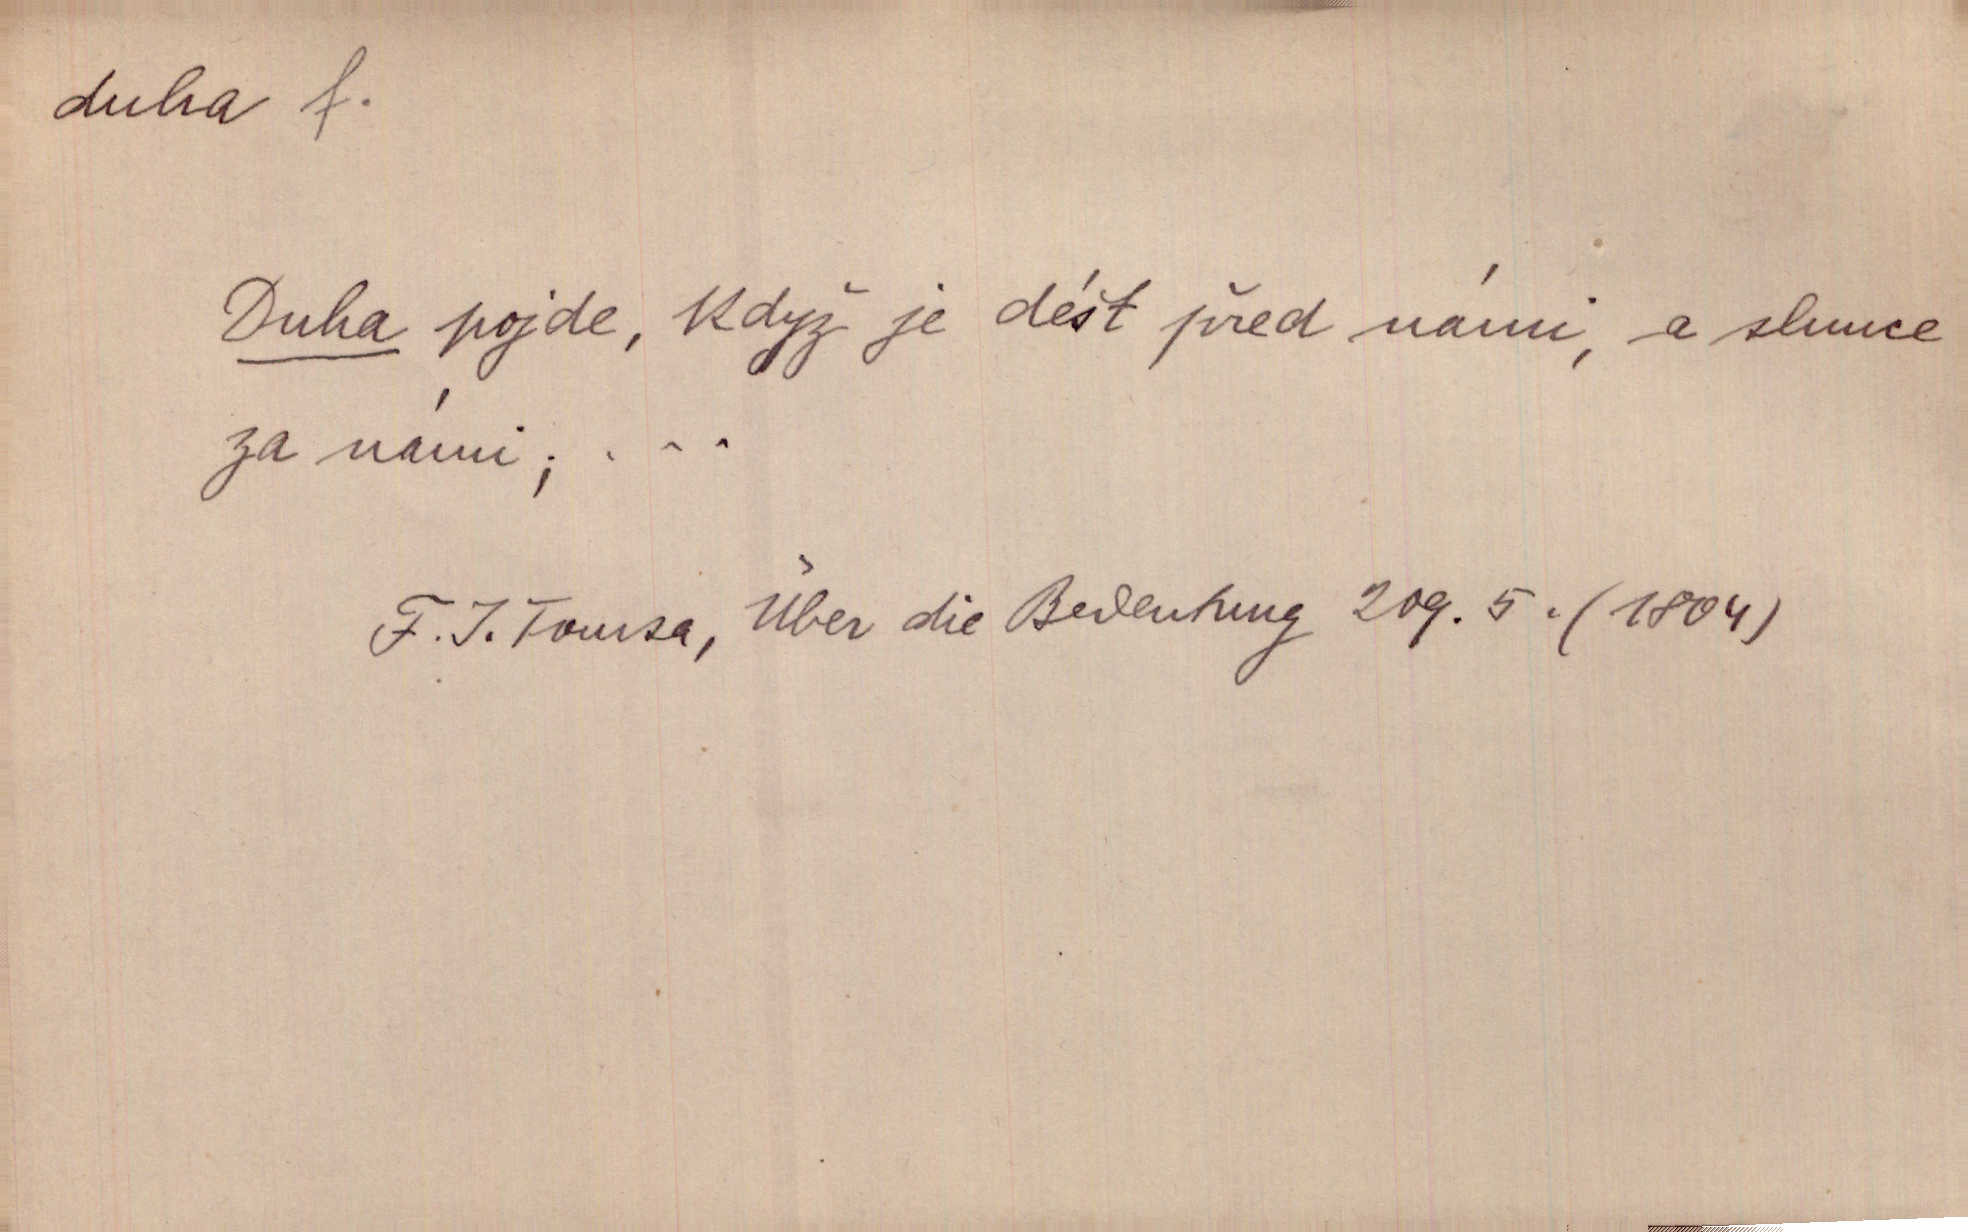 duha f.
Duha pojde, když je déšt před námi, a slunce
za námi; . . .
F. J. Tomsa, Über die Bedeutung 209. 5. (1804)